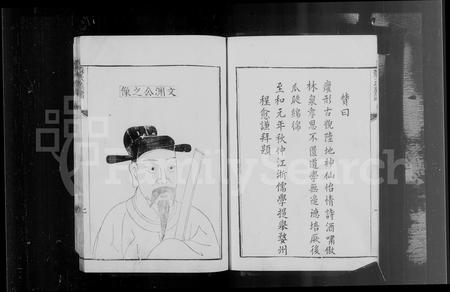 文淵公之像
贊曰
癯形古貌陸地神仙怡情詩酒嘯傲
林泉孝思不匱道學無邊德培厥後
瓜瓞綿綿
至和元年秋仲江浙儒學提舉婺州
程愈謙拜題
FamilySearch